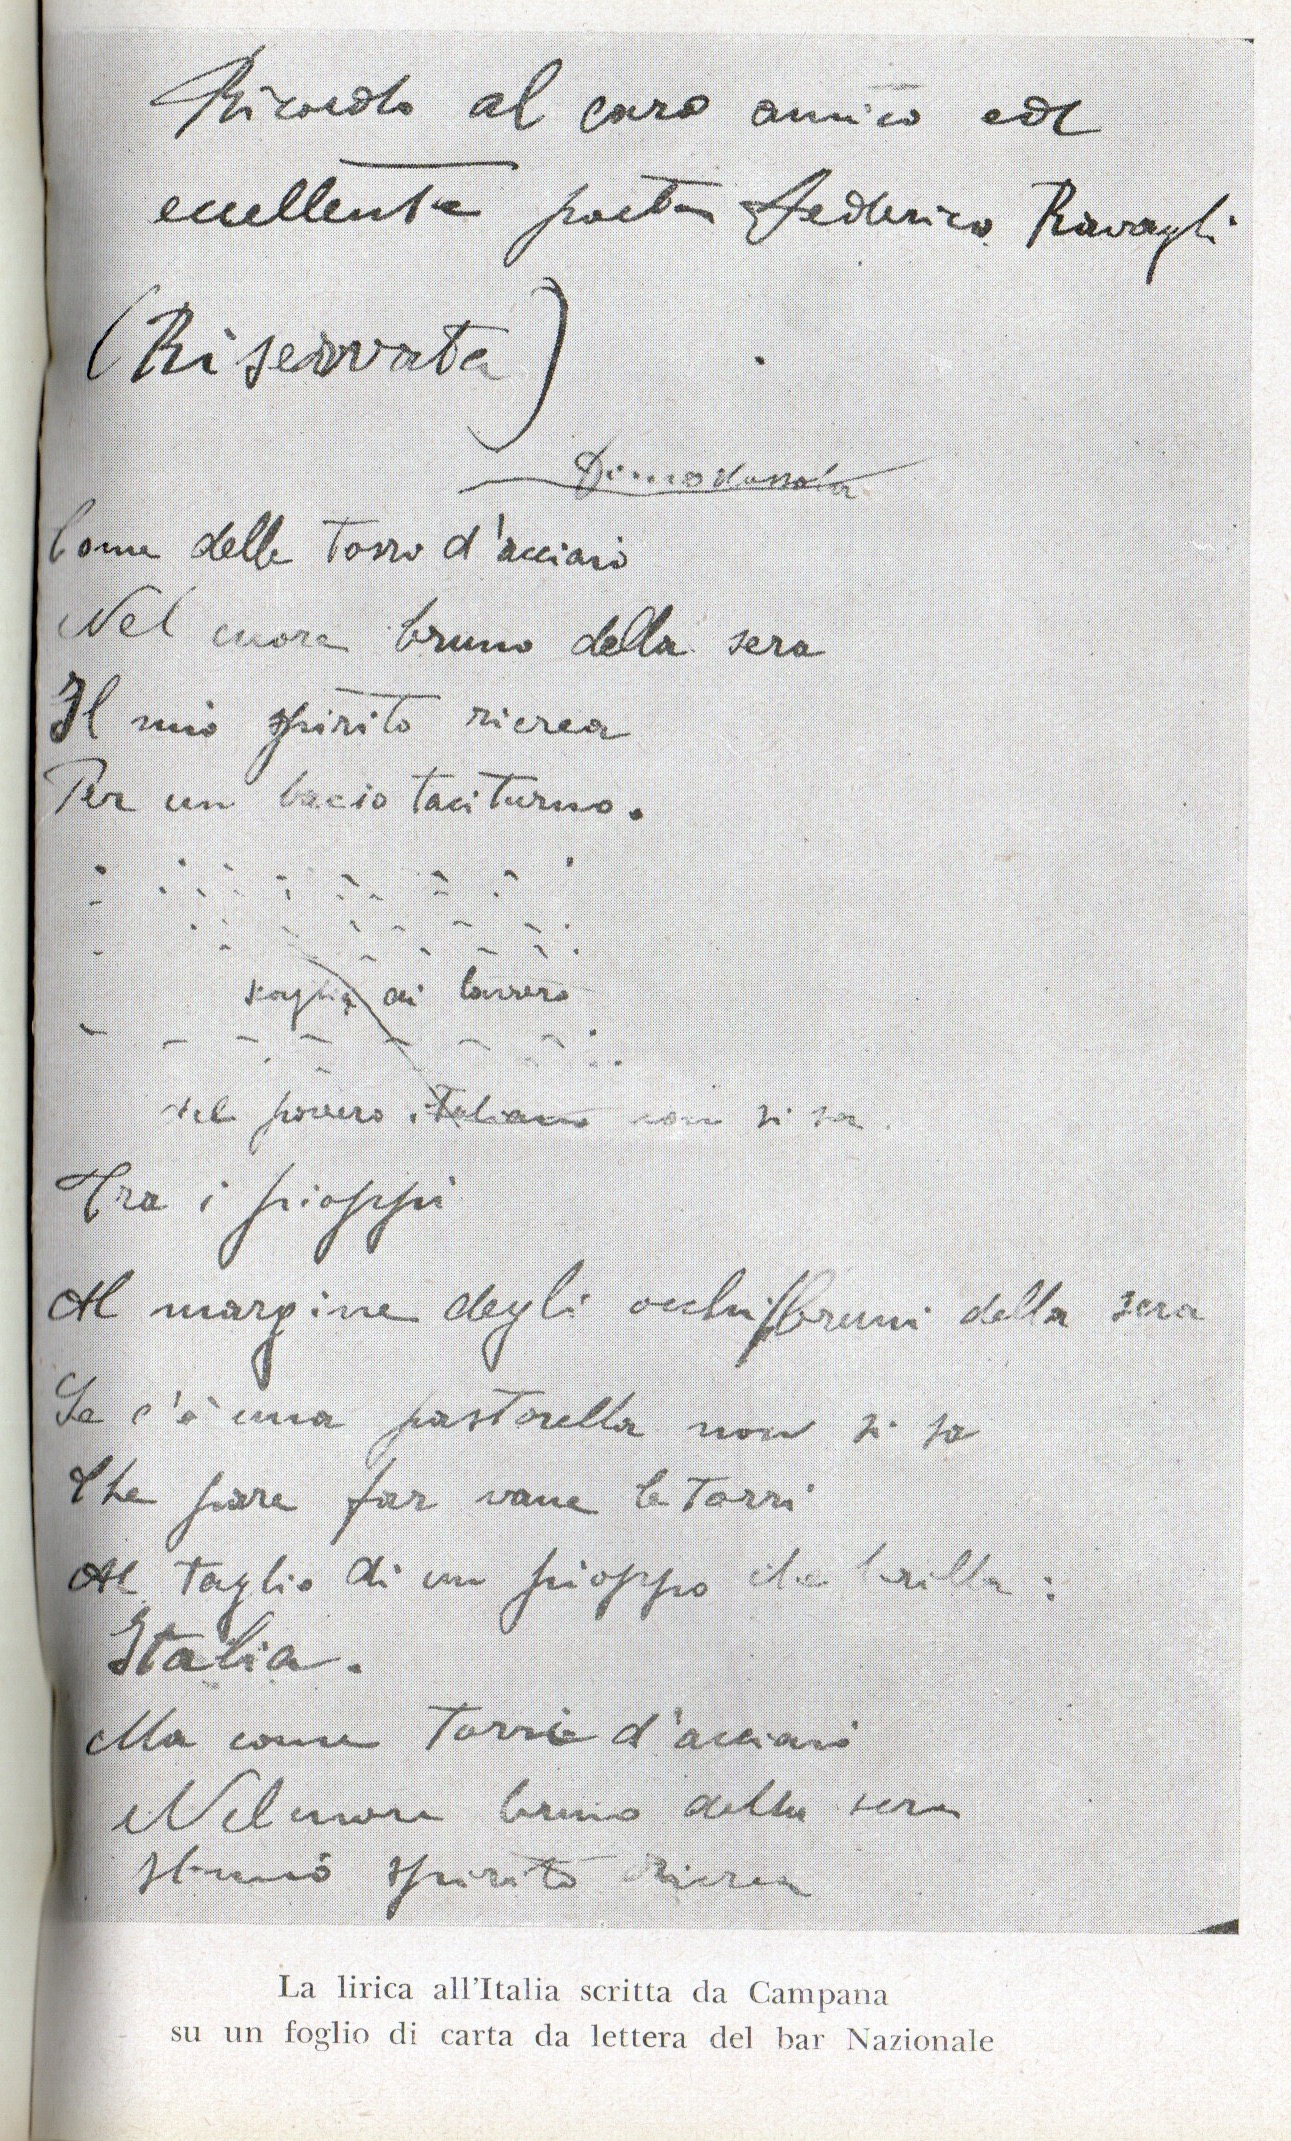 Ricordo al caro amico ed
eccellente poeta Federico Ravagli
(Riservata)
Domodossola
Come delle torro d'acciaio
Nel cuore bruno della sera
Il mio spirito ricrea
Per un bacio taciturno.
del povero italiano non si sa
Tra i pioppi
Al margine degli occhi bruni della sera
Se c'è una pastorella non si sa
Che pare far vane le torri
Al taglio di un pioppo che brilla:
Italia.
Ma come torri d'acciaio
Nel cuore bruno della sera
Il mio spirito ricrea
La lirica all'Italia scritta da Campana
su un foglio di carta da lettera del bar Nazionale